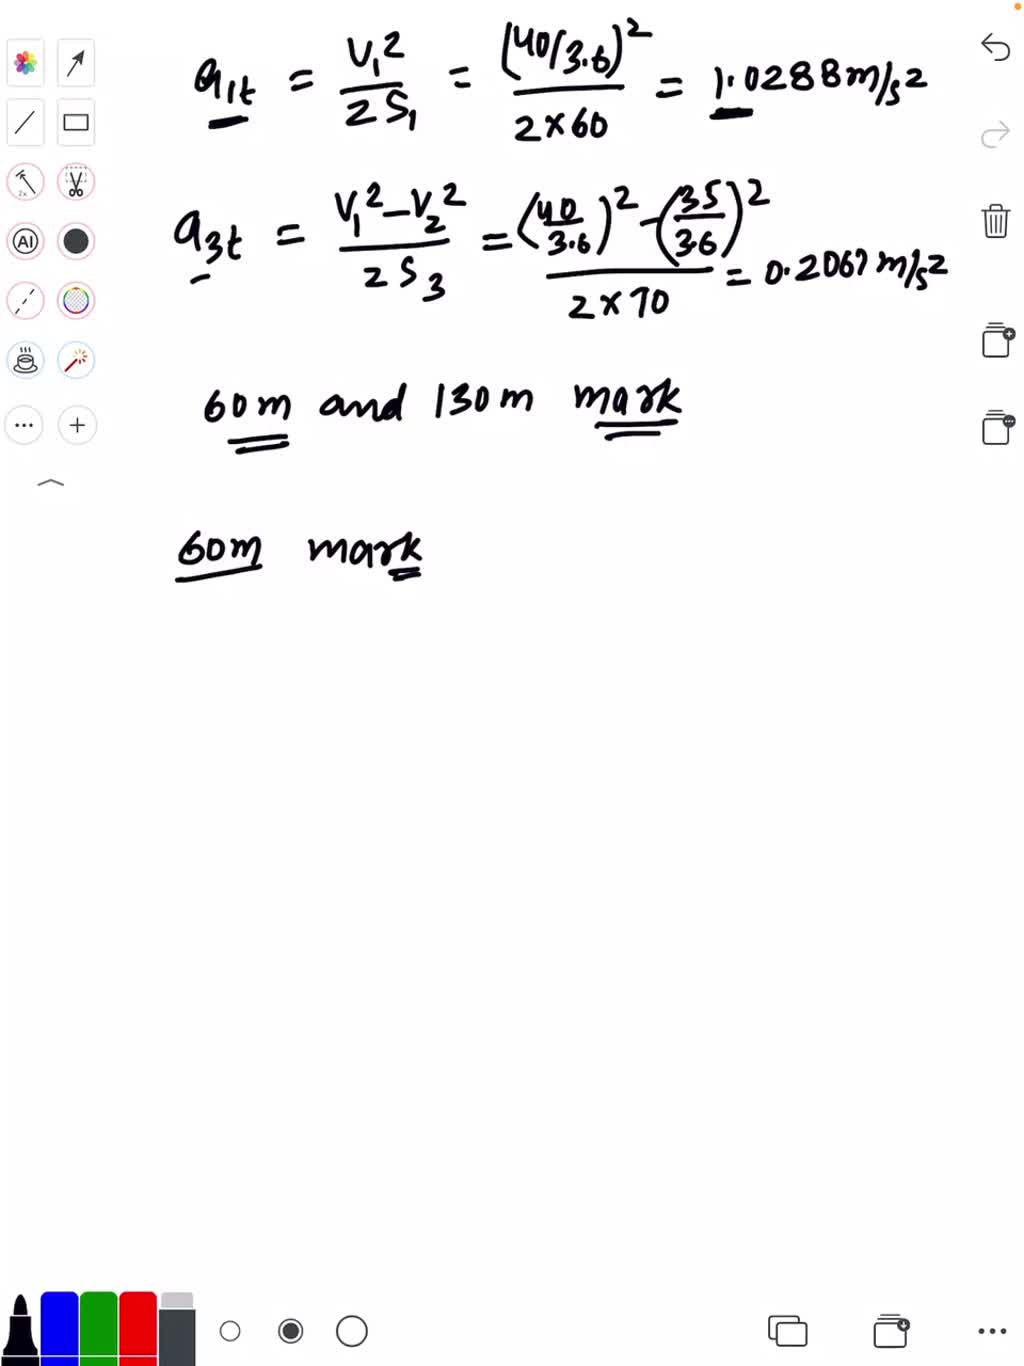 a₁t = V₁² / 2S₁ = (40/3.6)² / 2×60 = 1.0288 m/s²
a₃t = V₁² − V₂² / 2S₃ = (40/3.6)² − (35/3.6)² / 2×70 = 0.2067 m/s²
60m and 130m mark
60m mark